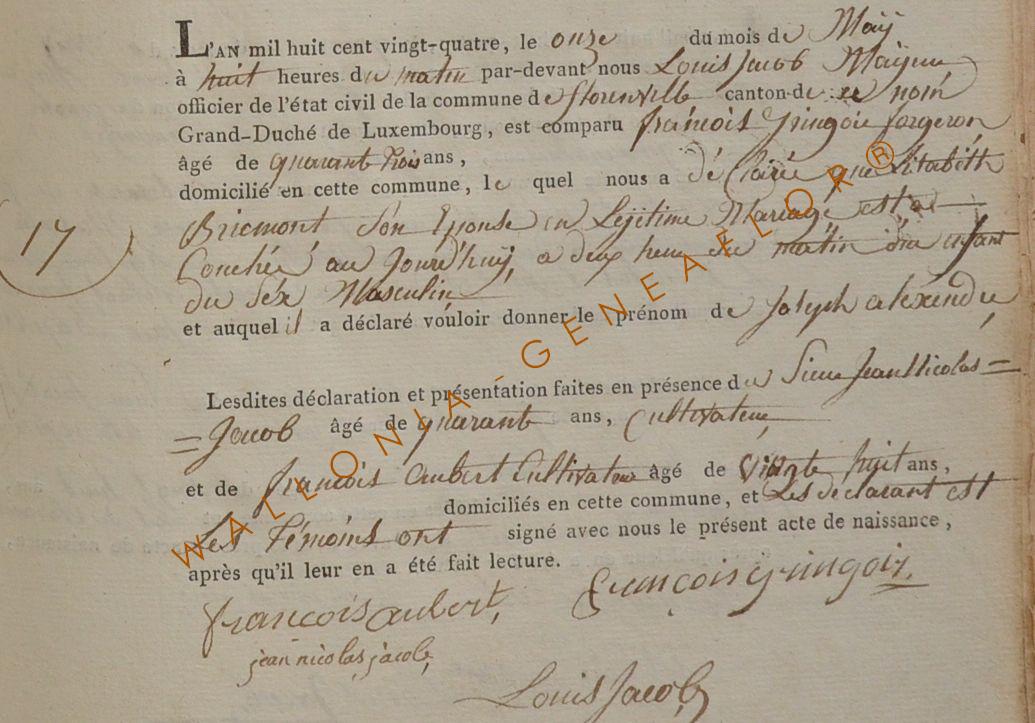 L'AN mil huit cent vingt-quatre, le onze du mois de Maÿ
à huit heures du matin par-devant nous Louis Jacob Mayeur
officier de l'état civil de la commune de florenville canton de ce nom
Grand-Duché de Luxembourg, est comparu françois Gringoir forgeron
âgé de quarant trois ans,
domicilié en cette commune, le quel nous a déclaré que Elisabéth
17
Bricmont son Epouse en Lejitime Mariage est a
Couchée au Jourdhuÿ, a deux heur du matin d'un enfant
du séx Masculin
et auquel il a déclaré vouloir donner le prénom de Joseph alexendre,
Lesdites déclaration et présentation faites en présence du Sieur Jean Nicolas =
= Jacob âgé de quarant ans, Cultivateur,
et de françois aubert Cultivateur âgé de vingte huit ans,
domiciliés en cette commune, et Les declarant est
Les témoins ont signé avec nous le présent acte de naissance,
après qu'il leur en a été fait lecture.
françois aubert, françois gringoir.
jean nicolas jàcob,
Louis Jacob
WALLONIA-GENEAFLOR®